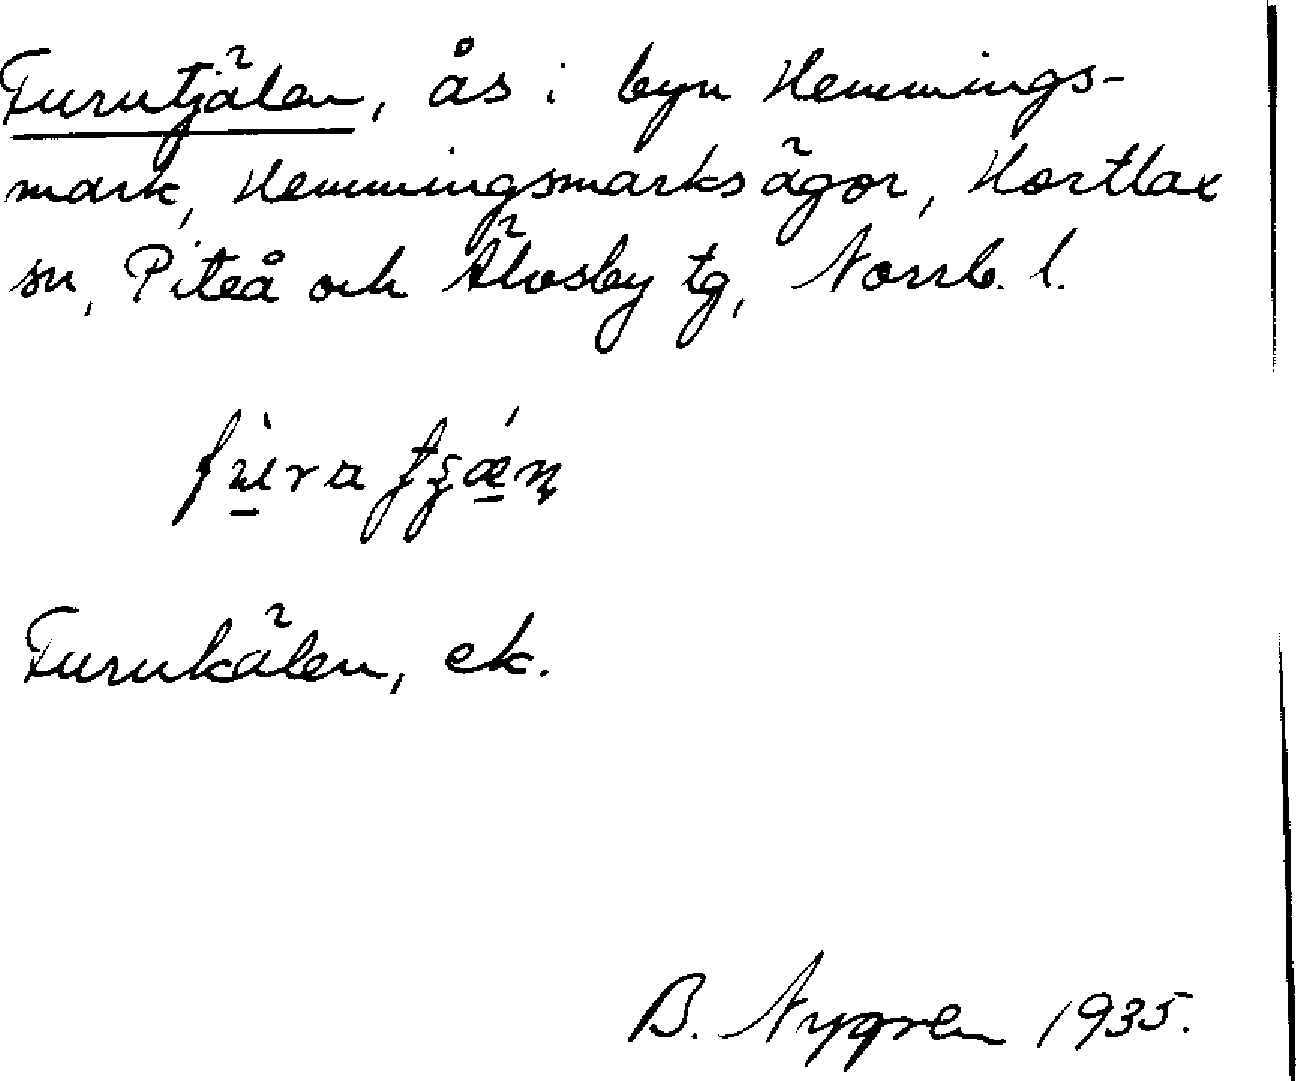 Furutjälen, ås i byn Hemmings-
mark, Hemmingsmarks ägor, Hortlax
sn, Piteå och Älvsby tg, Norrb. l.
Furukälen, ek.
B. Nygren 1935.